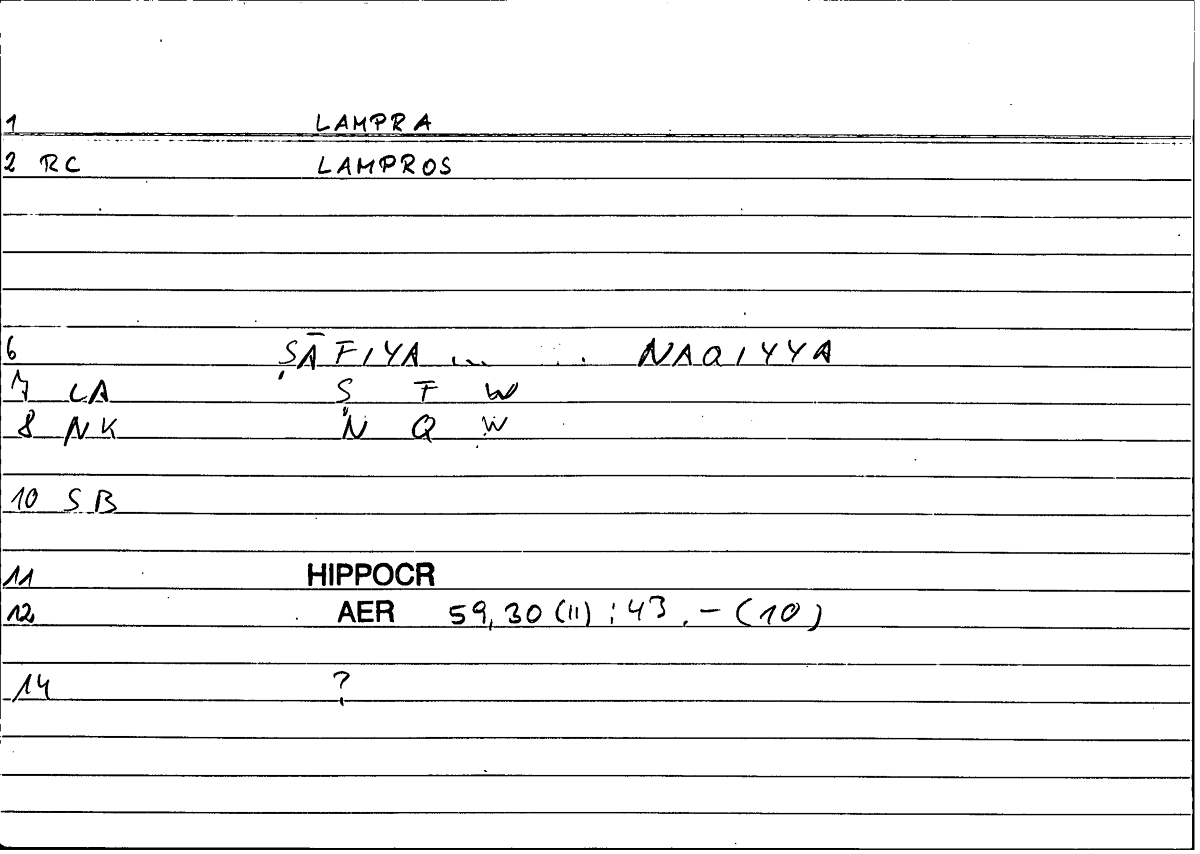 1 LAMPRA
2 RC LAMPROS
6 ṢĀFIYA ... ... NAQIYYA
7 LA Ṣ F W
8 NK N Q W
10 SB
11 HIPPOCR
12 AER 59,30 (11) : 43. - (10)
14 ?